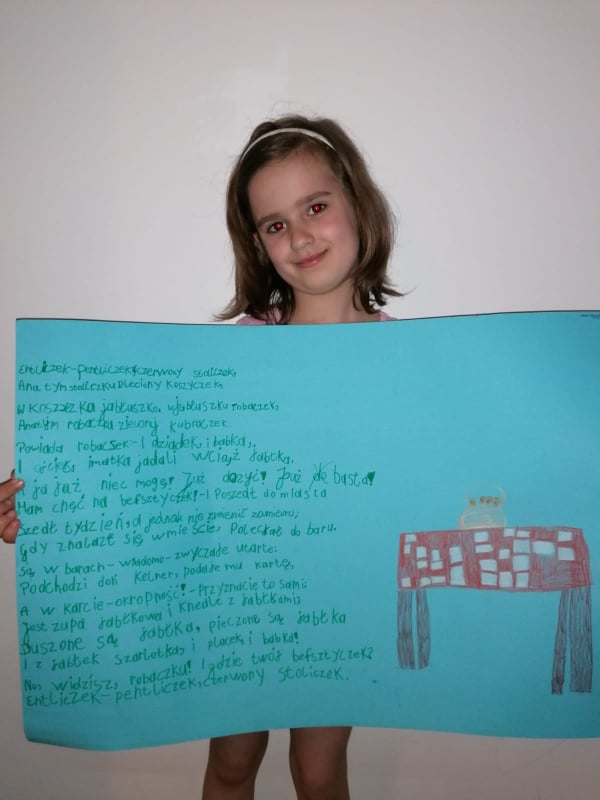 Entliczek-pentliczek, czerwony stoliczek,
A na tym stoliczku pleciony koszyczek,
W koszyczku jabłuszko, w jabłuszku robaczek,
A na tym robaczku zielony kubraczek.
Powiada robaczek-I dziadek, i babka,
I ojciec, i matka jadali wciąż jabłka,
A ja już nie mogę! Już dożyć! Już de basta!
Mam chęć na befsztyczek!-I poszedł do miasta
Szedł tydzień, a jednak nie zmienił zamiaru,
Gdy znalazł się w mieście, poleciał do baru.
Są w barach-wiadomo-zwyczaje utarte:
Podchodzi doń kelner, podaje mu kartę,
A w karcie-okropność!-Przyznacie to sami:
Jest zupa jabłkowa i knedle z jabłkami,
Duszone są jabłka, pieczone są jabłka
I z jabłek szarlotka, i placek i babka!
No, widzisz, robaczku! I gdzie twój befsztyczek?
Entliczek-pentliczek, czerwony stoliczek.